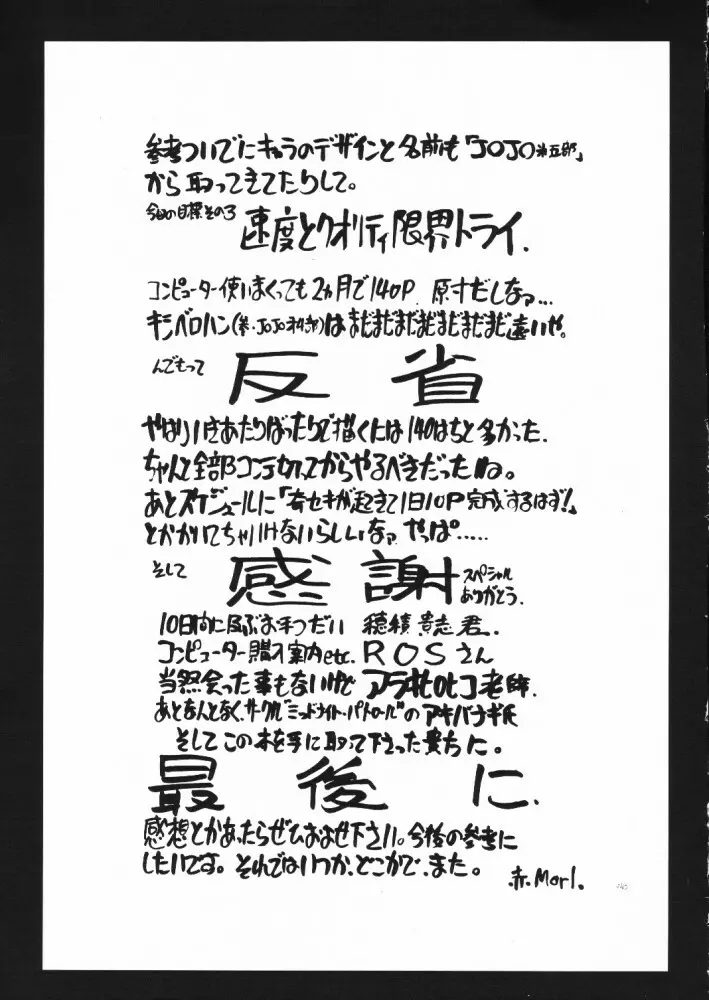 参考ついでにキャラのデザインと名前も「JOJO第五部」
から取ってきてたりして。
今回の目標その3
速度とクオリティ限界トライ.
コンピューター使いまくっても2ヵ月で140P. 原寸だしなァ…
キシベロハン(参・JOJO)はまだまだまだまだまだまだまだ遠いや。
んでもって
反省
やはり行きあたりばったりで描くには140はちと多かった.
ちゃんと全部コンテ切ってからやるべきだったね。
あとスケジュールに「奇セキが起きて1日10P完成するはず!」
とかかいてちゃいけないらしいなァ やっぱ.....
そして
感謝
スペシャル
ありがとう.
10日間に及ぶお手つだい 穂積貴志君.
コンピューター購入案内etc. ROSさん
当然会った事もないけど アラキヒロヒコ老師.
あとなんとなく、サークル"ミッドナイト・パトロール"のアキバナギ氏
そしてこの本を手に取って下さった貴方に。
最後に.
感想とかあったらぜひおよせ下さい。今後の参考に
したいです。それではいつか、どこかで、また。
赤.MorI.